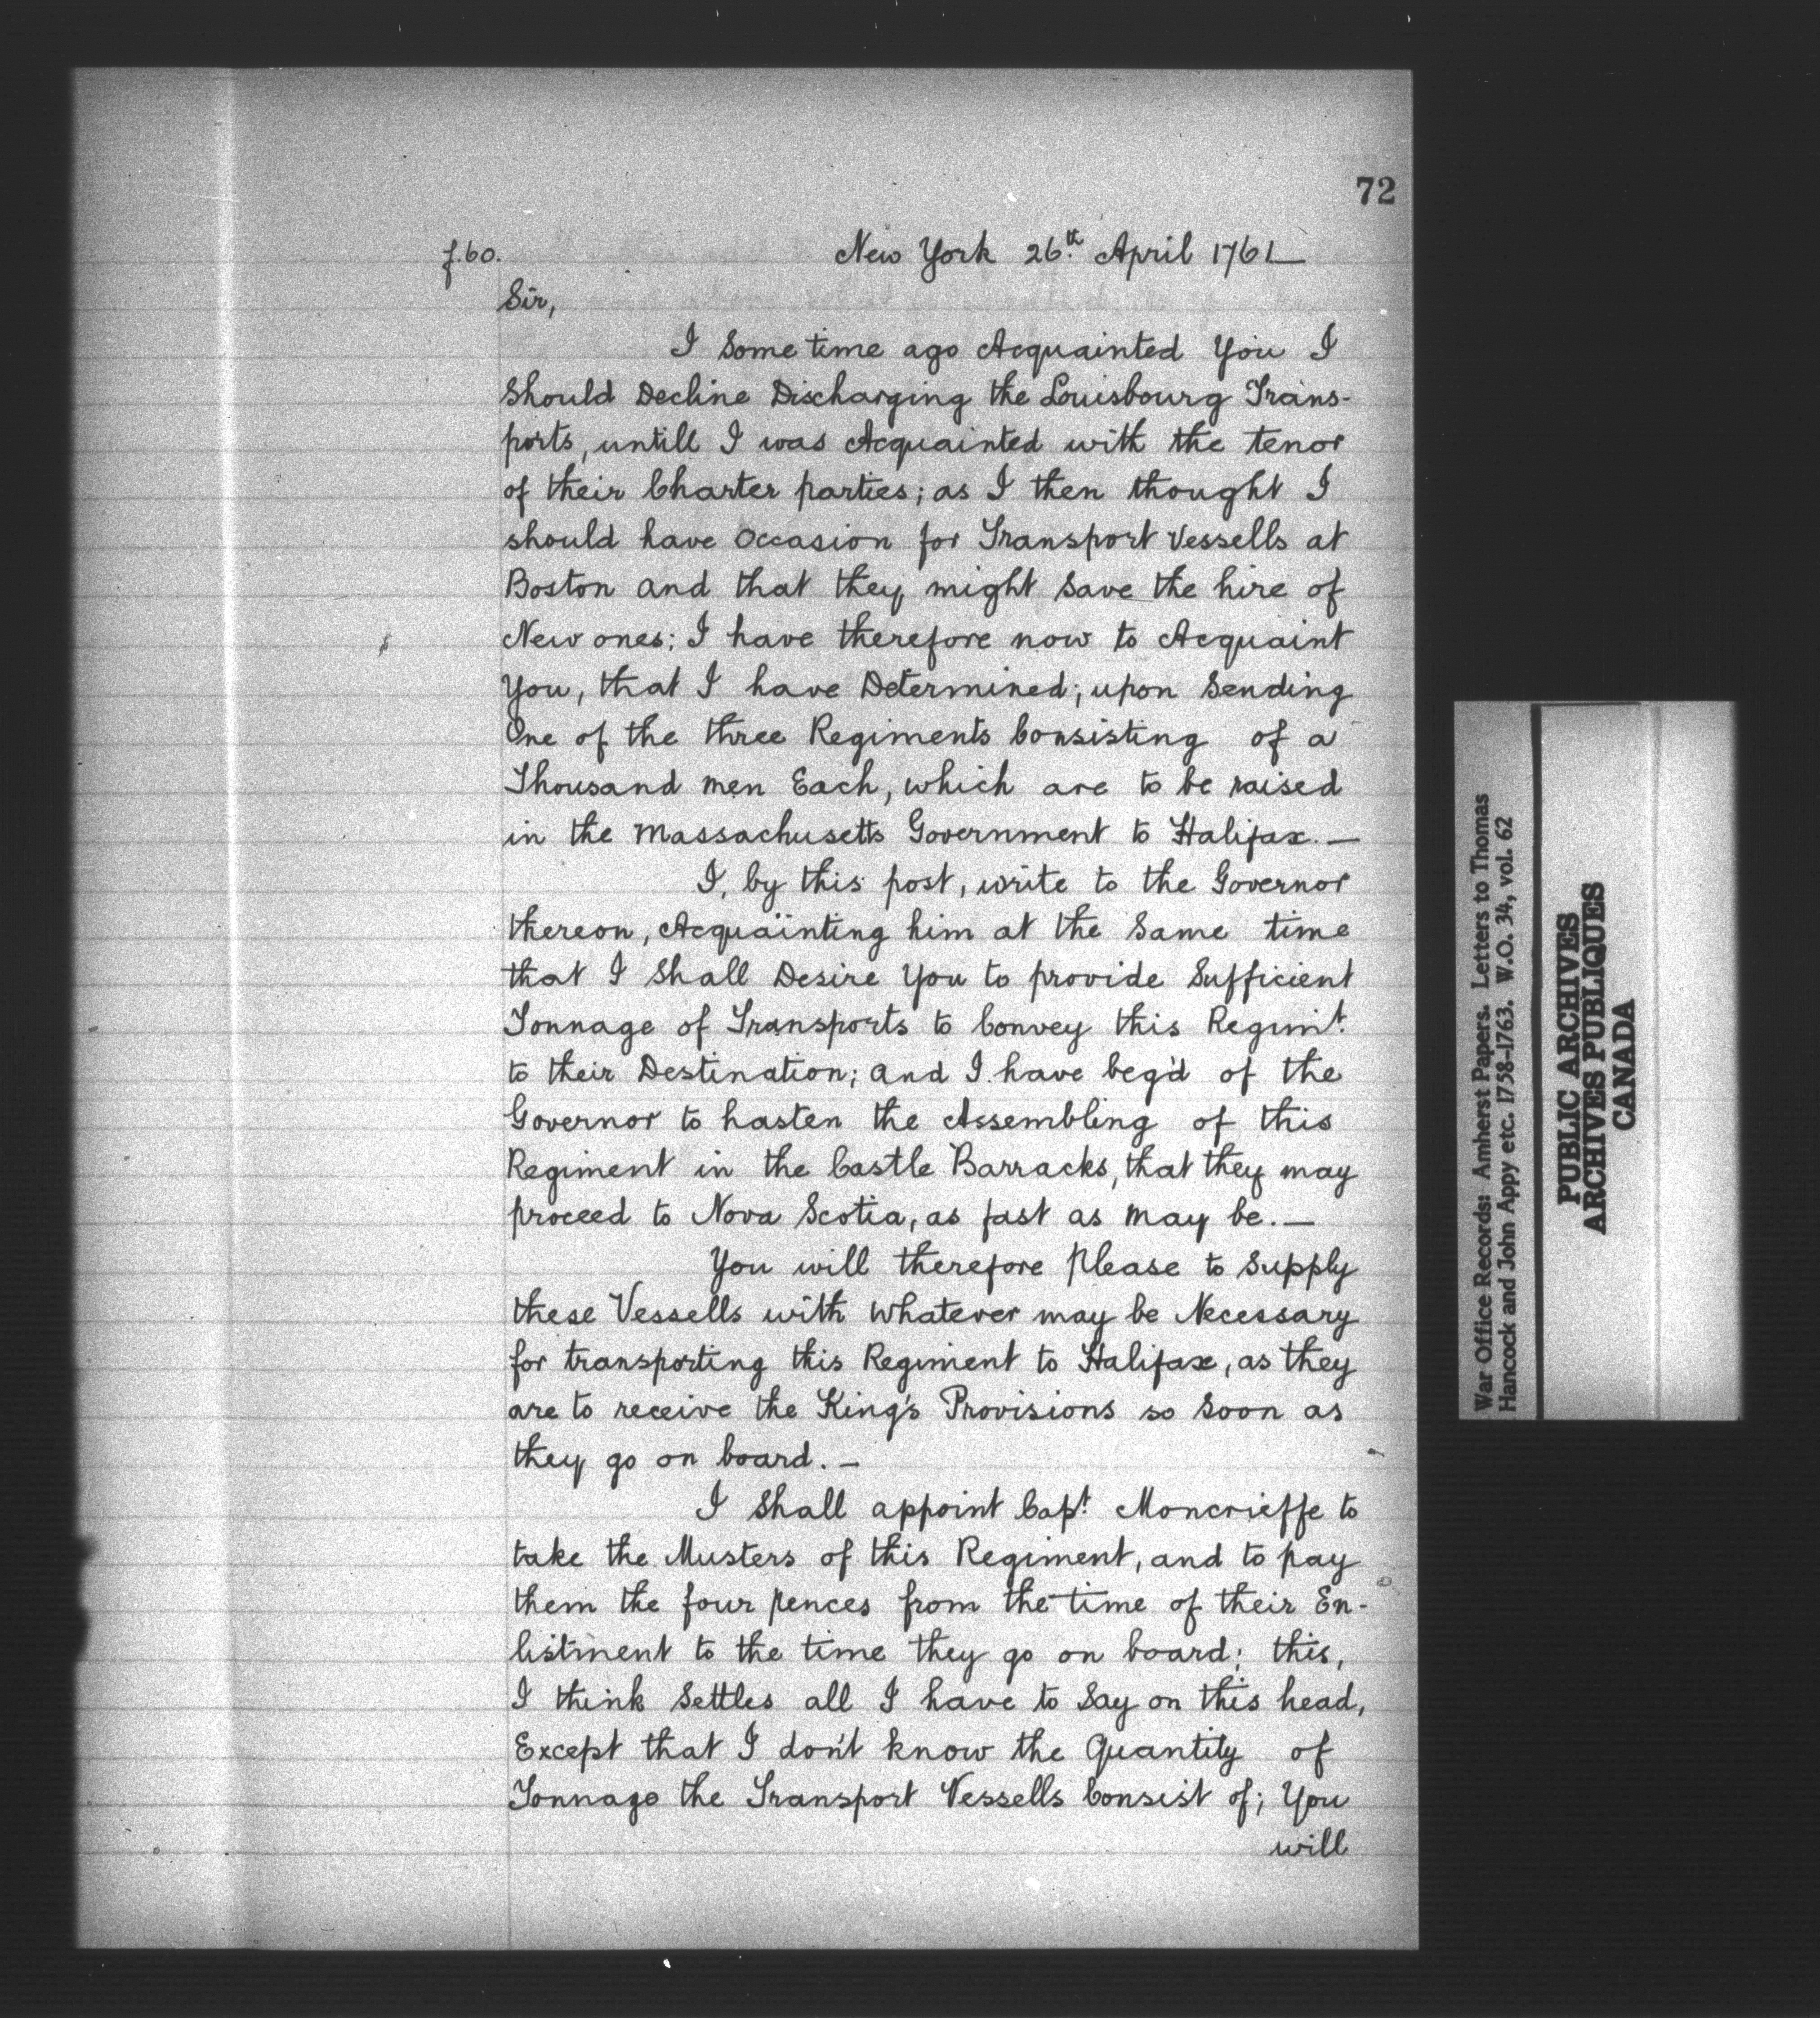 72
f.60.
New York 26.th April 1761
Sir,
I Some time ago Acquainted You I
Should Decline Discharging the Louisbourg Trans-
ports, untill I was Acquainted with the tenor
of their Charter parties; as I then thought I
should have Occasion for Transport Vessells at
Boston and that they might Save the hire of
New ones; I have therefore now to Acquaint
You, that I have Determined; upon Sending
One of the three Regiments Consisting of a
Thousand men Each, which are to be raised
in the Massachusetts Government to Halifax. —
I, by this post, write to the Governor
thereon, Acquainting him at the Same time
that I Shall Desire You to provide Sufficient
Tonnage of Transports to Convey this Regim.t
to their Destination; and I have beg'd of the
Governor to hasten the Assembling of this
Regiment in the Castle Barracks, that they may
proceed to Nova Scotia, as fast as may be. —
You will therefore Please to Supply
these Vessells with Whatever may be Necessary
for transporting this Regiment to Halifax, as they
are to receive the King's Provisions so Soon as
they go on board. —
I Shall appoint Cap.t Moncrieffe to
take the Musters of this Regiment, and to pay
them the four pences from the time of their En-
listment to the time they go on board; this,
I think Settles all I have to Say on this head,
Except that I don't know the Quantity of
Tonnage the Transport Vessells Consist of; You
will
War Office Records: Amherst Papers. Letters to Thomas
Hancock and John Appy etc. 1758-1763. W.O. 34, vol. 62
PUBLIC ARCHIVES
ARCHIVES PUBLIQUES
CANADA